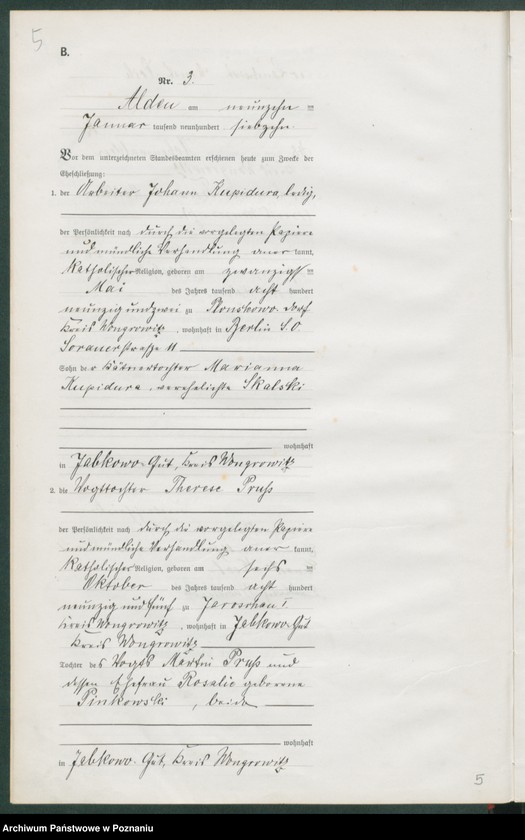 5
B.
Nr. 3.
Alden am neunzehn ten
Januar tausend neunhundert siebzehn
Vor dem unterzeichneten Standesbeamten erschienen heute zum Zwecke der
Eheschließung:
1. der Arbeiter Johann Kupidura, ledig,
der Persönlichkeit nach durch die vorgelegten Papiere
und mündliche Verhandlung aner kannt,
katholischer Religion, geboren am zwanzigs ten
Mai des Jahres tausend acht hundert
neunzig und zwei zu Dorf
Kreis Wongrowitz, wohnhaft in Berlin S.O.
Sorauerstraße 11
Sohn der Kätnertochter Marianna
Kupidura, verehelichte Skalski
wohnhaft
in Jabkowo-Gut, Kreis Wongrowitz
2. die Vogttochter Therese Pruß
der Persönlichkeit nach durch die vorgelegten Papiere
und mündliche Verhandlung aner kannt,
katholischer Religion, geboren am sechs ten
Oktober des Jahres tausend acht hundert
neunzig und fünf zu Jaroschau I
Kreis Wongrowitz, wohnhaft in Jabkowo-Gut
Kreis Wongrowitz
Tochter des Vogts Martin Pruß und
dessen Ehefrau Rosalie geborene
Pinkowski, beide
wohnhaft
in Jabkowo-Gut, Kreis Wongrowitz
5
Archiwum Państwowe w Poznaniu